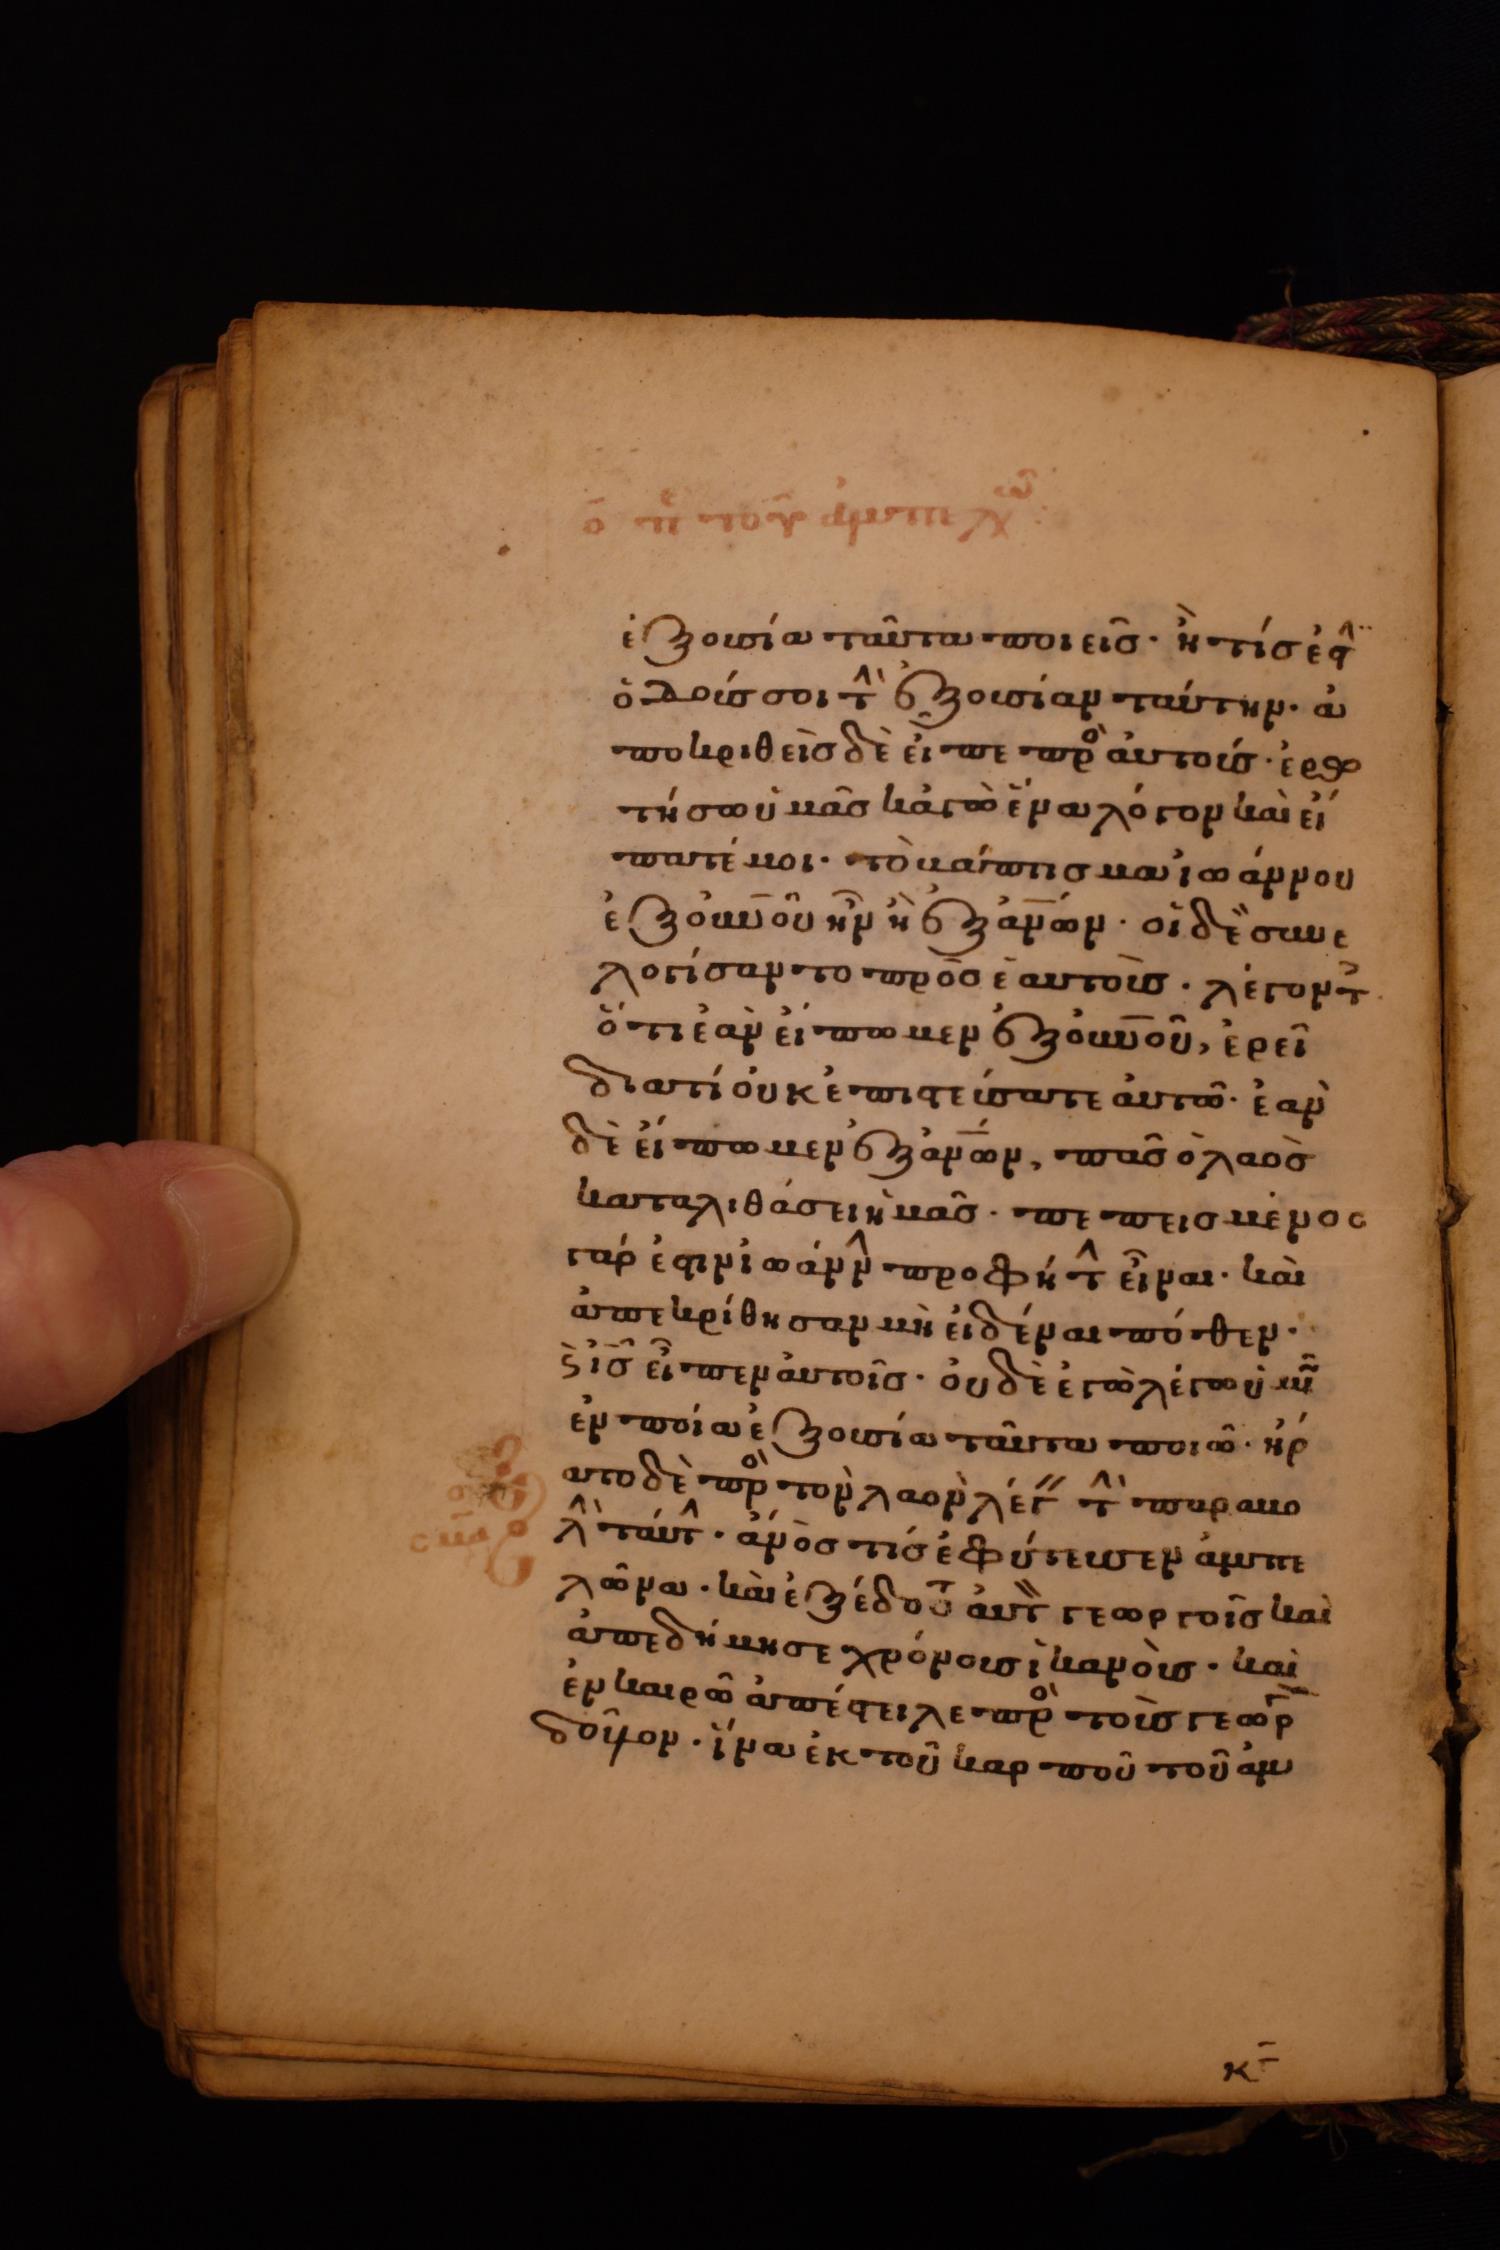 ο π τοῦ ἀμπελῶ:
ἐξουσία ταῦτα ποιεῖσ· ἢ τίσ ἐστ
ὁ δούσ σοι τ ἐξουσίαν ταύτην· ἀ
ποκριθεὶσ δὲ εἶπε πρ αὐτούσ· ἐρω
τήσω ὑμᾶσ κἀγὼ ἕνα λόγον καὶ εἴ
πατέ μοι· τὸ βάπτισμα ἰωάννου
ἐξ οὐνοῦ ἦν ἢ ἐξ ἀνων· οἱ δὲ συνε
λογίσαντο πρὸσ ἑαυτοὺσ· λέγοντ
ὅτι ἐὰν εἴπωμεν ἐξ οὐνοῦ, ἐρεῖ
διατί οὐκ ἐπιστεύσατε αὐτῶ· ἐὰν
δὲ εἴπωμεν ἐξ ἀνων, πᾶσ ὁ λαὸσ
καταλιθάσει ἡμᾶσ· πεπεισμένοσ
γάρ ἐστιν ἰωάνν προφήτ εἶναι· καὶ
ἀπεκρίθησαν μὴ εἰδέναι πόθεν·
ὁ ισ εἶπεν αὐτοῖσ· οὐδὲ ἐγὼ λέγω ὑμ
ἐν ποία ἐξουσία ταῦτα ποιῶ· ἤρ
ατο δὲ πρ τὸν λαὸν λέγ τ παραβο
λ ταύτ· ἀνοσ τίσ ἐφύτευσεν ἀμπε
λῶνα· καὶ ἐξέδοτ αὐτ γεωργοῖσ καὶ
ἀπεδήμησε χρόνουσ ἱκανοὺσ· καὶ
ἐν καιρῶ ἀπέστειλε πρ τοὺσ γεωρ
δοῦλον· ἵνα ἐκ τοῦ καρποῦ τοῦ ἀμ
κ